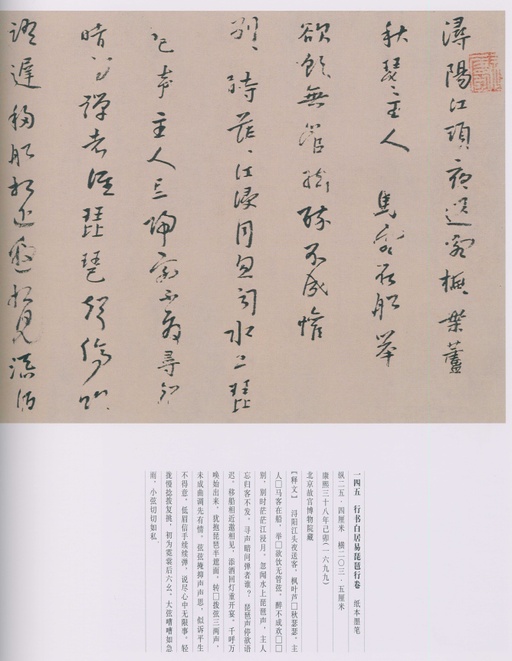 潯陽江頭夜送客楓葉蘆
秋瑟瑟主人 馬客在船舉
欲飲無管絃醉不成慘
別別時茫茫江浸月忽聞水上琵
琶声主人忘歸客不發尋聲
暗問彈者誰琵琶聲停欲
語遲移船相近邀相見添酒
一四五 行书白居易琵琶行卷 纸本墨笔
纵二五·四厘米 横二〇三·五厘米
康熙三十八年己卯(一六九九)
北京故宫博物院藏
【释文】 浔阳江头夜送客,枫叶芦□秋瑟瑟。主
人□马客在船,举□欲饮无管弦。醉不成欢□□
别,别时茫茫江浸月。忽闻水上琵琶声,主人
忘归客不发。寻声暗问弹者谁?琵琶声停欲语
迟。移船相近邀相见,添酒回灯重开宴。千呼万
唤始出来,犹抱琵琶半遮面。转□拨弦三两声,
未成曲调先有情。弦弦掩抑声声思,似诉平生
不得意。低眉信手续续弹,说尽心中无限事。轻
拢慢捻拨复挑,初为霓裳后六幺。大弦嘈嘈如急
雨,小弦切切如私